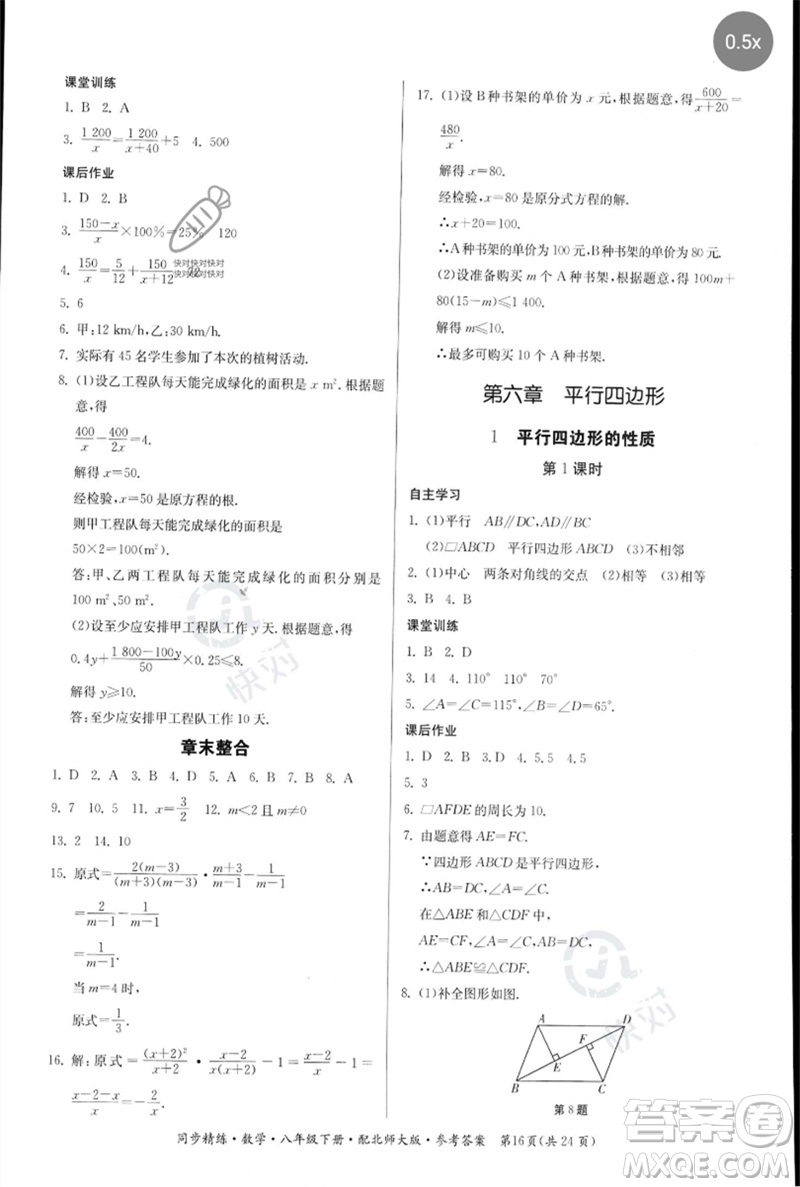 0.5x
课堂训练
1. B 2. A
3. 1 200/x=1 200/(x+40)+5 4. 500
课后作业
1. D 2. B
3. (150-x)/x×100%=25% 120
4. 150/x=5/12+150/(x+12)
5. 6
6. 甲:12 km/h,乙:30 km/h.
7. 实际有 45 名学生参加了本次的植树活动.
8. (1)设乙工程队每天能完成绿化的面积是 x m². 根据题
意,得
400/x-400/2x=4.
解得 x=50.
经检验,x=50 是原方程的根.
则甲工程队每天能完成绿化的面积是
50×2=100(m²).
答:甲、乙两工程队每天能完成绿化的面积分别是
100 m²、50 m².
(2)设至少应安排甲工程队工作 y 天. 根据题意,得
0.4y+(1 800-100y)/50×0.25≤8.
解得 y≥10.
答:至少应安排甲工程队工作 10 天.
章末整合
1. D 2. A 3. D 4. B 5. D 6. D 7. B 8. A
9. 7 10. 5 11. x=3/2 12. m<2 且 m≠0
13. 2 14. 10
15. 原式=2(m-3)/(m+3)(m-3)·(m+3)/(m-1)-1/(m-1)
=2/(m-1)-1/(m-1)
=1/(m-1).
当 m=4 时,
原式=1/3.
16. 解:原式=(x+2)²/(x+2)·(x-2)/x(x-2)-(x+1)/x=(x+2)/x-(x+1)/x=
17. (1)设 B 种书架的单价为 x 元,根据题意,得600/(x+20)=
480/x.
解得 x=80.
经检验,x=80 是原分式方程的解.
∴x+20=100.
∴A 种书架的单价为 100 元,B 种书架的单价为 80 元.
(2)设准备购买 m 个 A 种书架. 根据题意,得 100m+
80(15-m)≤1 400.
解得 m≤10.
∴最多可购买 10 个 A 种书架.
第六章 平行四边形
1 平行四边形的性质
第 1 课时
自主学习
1. (1)平行 AB∥DC,AD∥BC
(2)□ABCD 平行四边形 ABCD (3)不相邻
2. (1)中心 两条对角线的交点 (2)相等 (3)相等
3. B 4. B
课堂训练
1. B 2. D
3. 14 4. 110° 110° 70°
5. ∠A=∠C=115°,∠B=∠D=65°.
课后作业
1. D 2. B 3. D 4. 5.5 4.5
5. 3
6. □AFDE 的周长为 10.
7. 由题意得 AE=FC.
∵四边形 ABCD 是平行四边形,
∴AB=DC,∠A=∠C.
在△ABE 和△CDF 中,
AE=CF,∠A=∠C,AB=DC,
∴△ABE≌△CDF.
8. (1)补全图形如图.
A D
F
E
B C
第 8 题
同步精练·数学·八年级下册·配北师大版·参考答案 第16页(共 24 页)
快对
快对
作业精灵
MXQE.COM